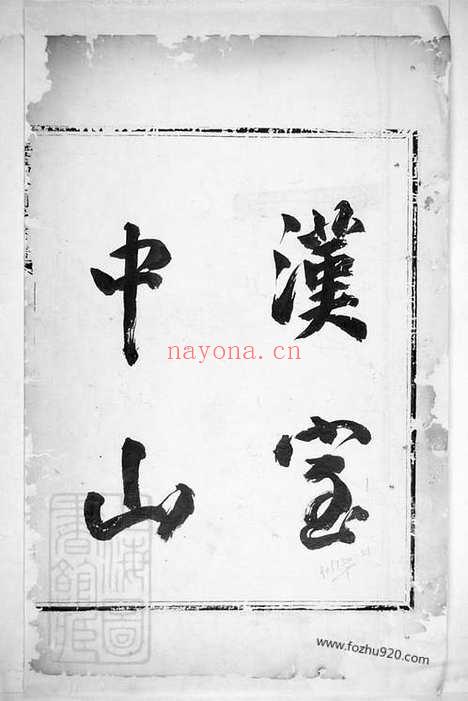 漢室
中山
nayona.cn
www.fozhu920.com